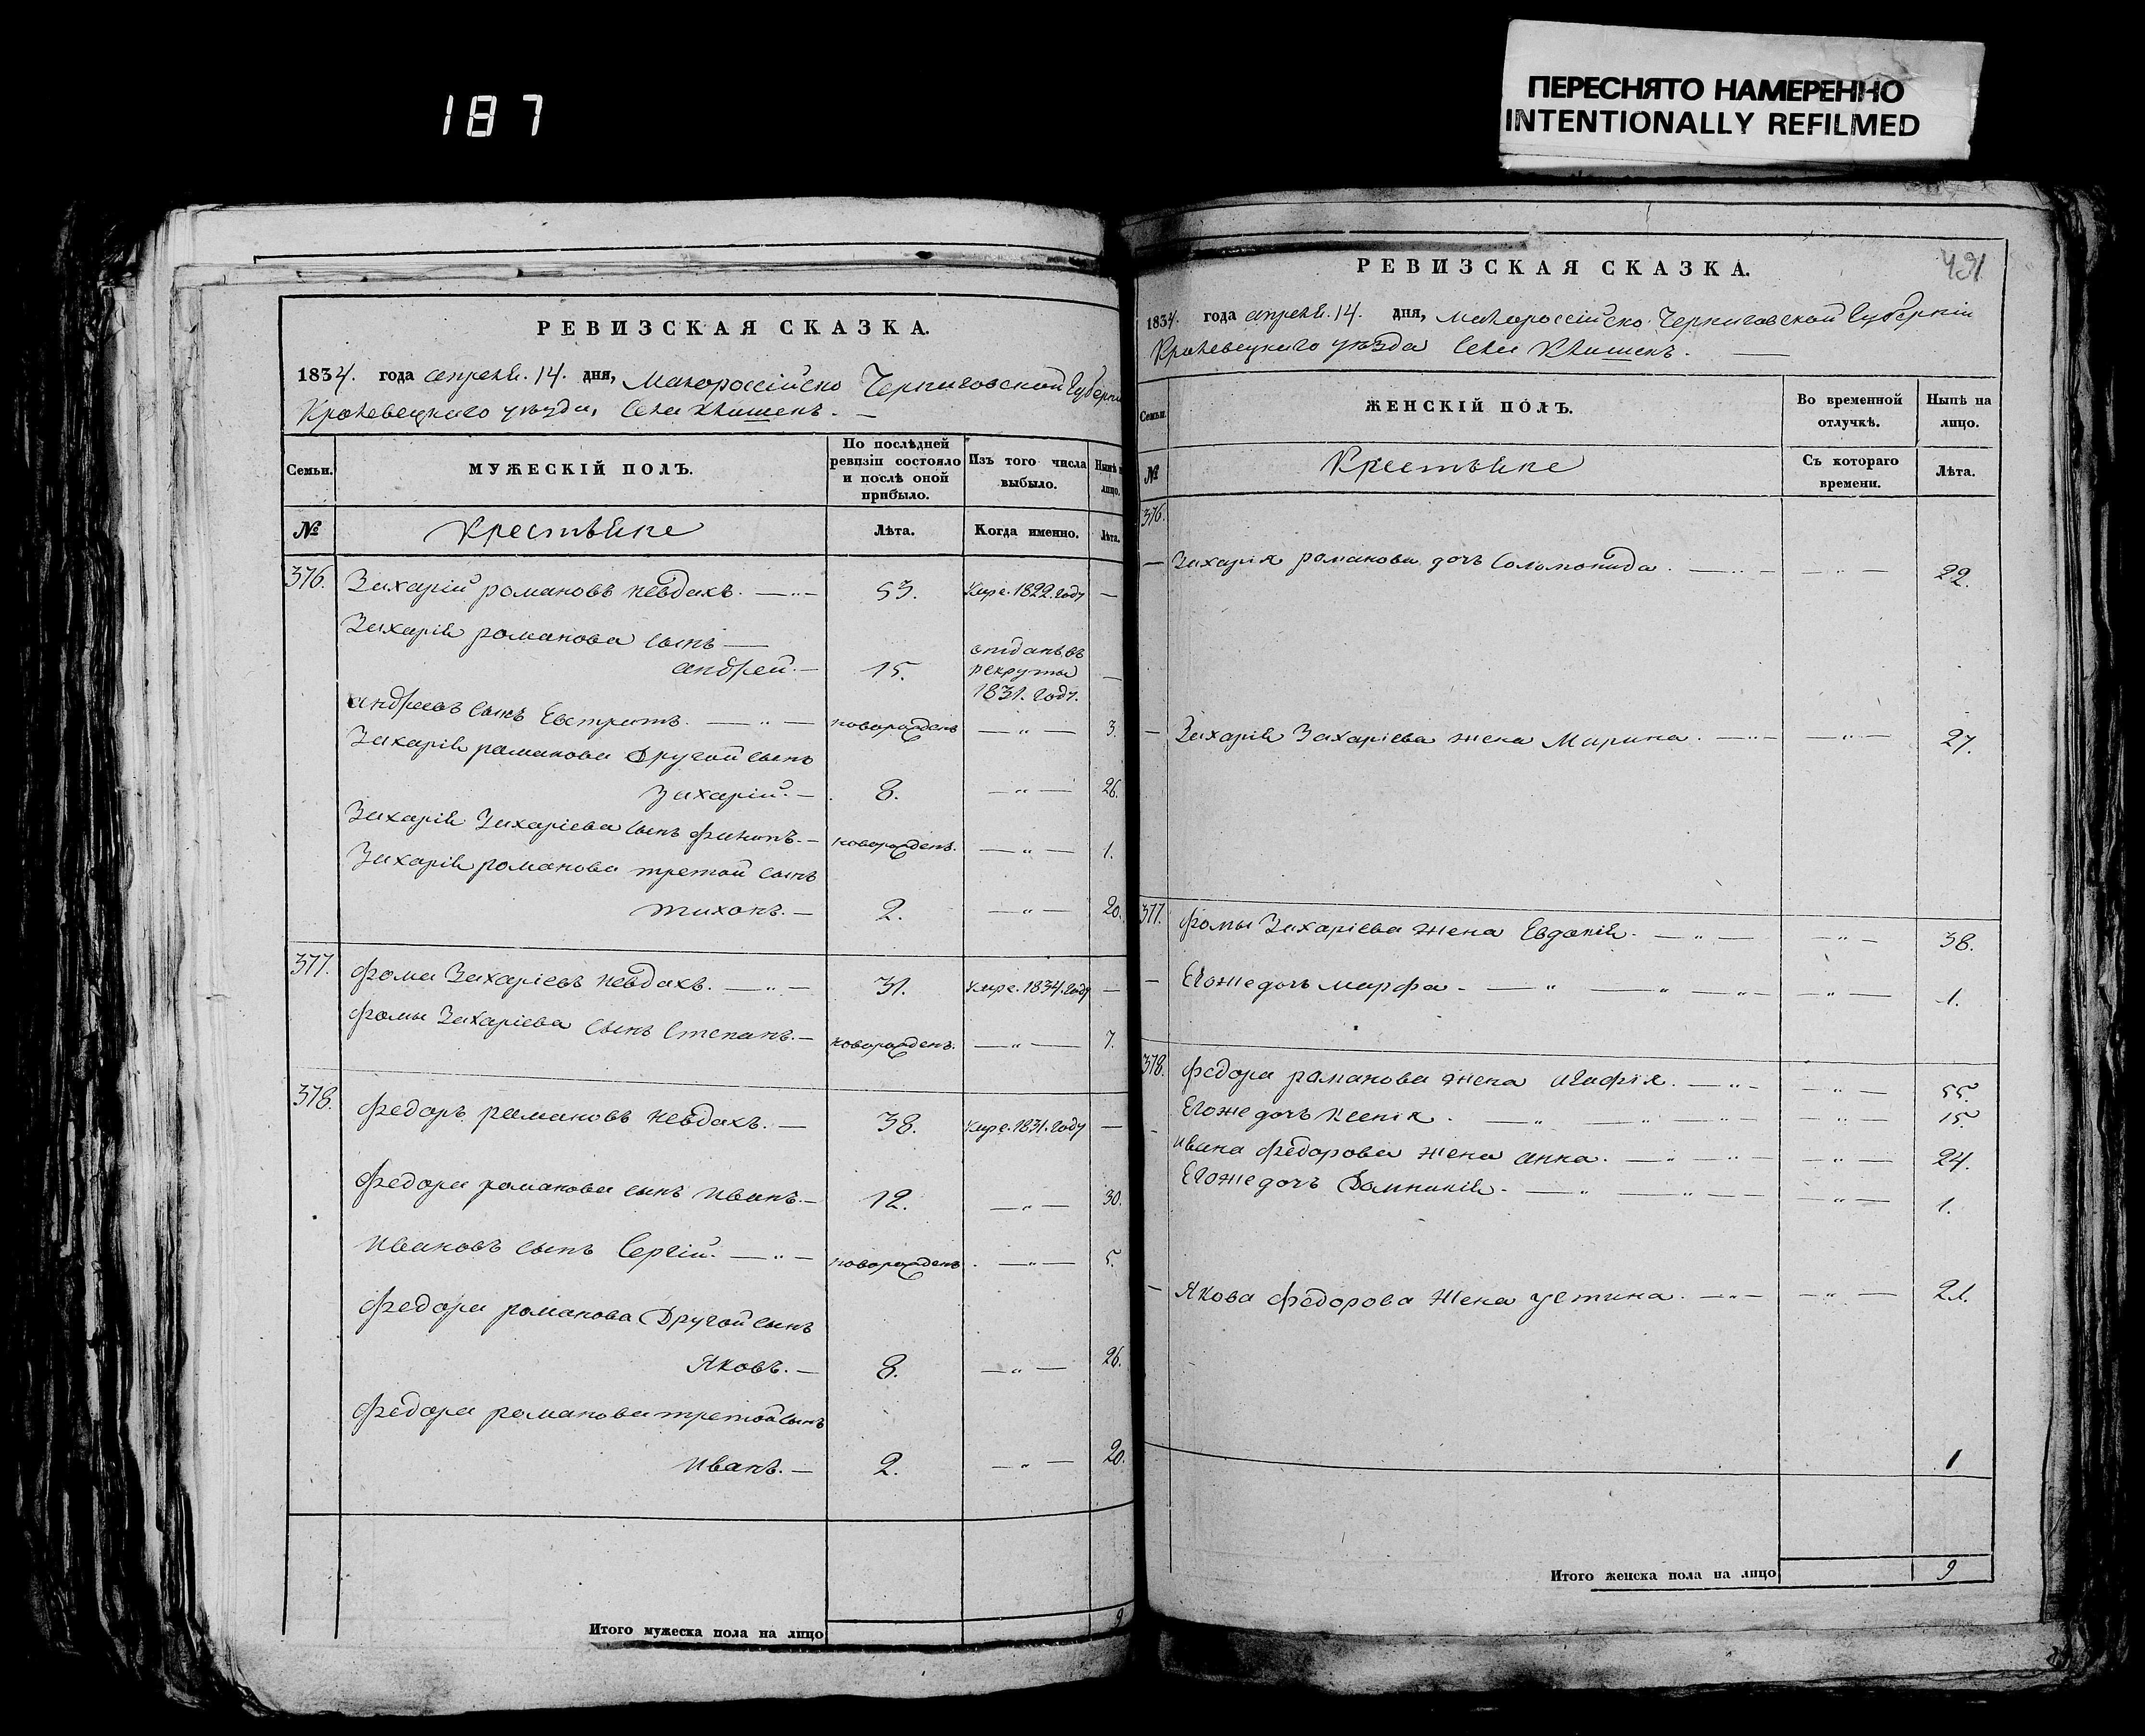 187
ПЕРЕСНЯТО НАМЕРЕННО
INTENTIONALLY REFILMED
РЕВИЗСКАЯ СКАЗКА.
1834. года апреля. 14. дня, Малороссійско Черниговской Губерніи
Кролевецкаго уѣзда, Села Клишекъ. —
Семьи.
МУЖЕСКІЙ ПОЛЪ.
По послѣдней ревизіи состояло и послѣ оной прибыло.
Изъ того числа выбыло.
Нынѣ лицо.
№
Крестьяне
Лѣта.
Когда именно.
Лѣта.
376. Захарій романовъ невдахъ. — 53. Умре. 1822. году —
Захарія романова сынъ —
андрей. — 15. отданъ въ рекруты 1831. году. —
андреевъ сынъ Евстратъ. — новорожденъ — 3.
Захарія романова Другой сынъ
Захарій. — 8. — 26.
Захарія Захаріева сынъ Филипъ. — новорожденъ. — 1.
Захарія романова третой сынъ
тихонъ. — 2. — 20.
377. фома Захаріевъ невдахъ. — 31. умре. 1834. году —
фомы Захаріева сынъ Степанъ. — новорожденъ. — 7.
378. федоръ романовъ невдахъ. — 38. умре. 1831. году —
федора романова сынъ иванъ. — 12. — 30.
ивановъ сынъ Сергій. — новорожденъ — 5.
федора романова Другой сынъ
Яковъ. — 8. — 26.
федора романова третой сынъ
иванъ. — 2. — 20.
Итого мужеска пола на лицо 9
491
РЕВИЗСКАЯ СКАЗКА.
1834. года апреля. 14. дня, Малороссійско Черниговской Губерніи
Кролевецкаго уѣзда Села Клишекъ. —
Семьи.
ЖЕНСКІЙ ПОЛЪ.
Во временной отлучкѣ.
Нынѣ на лицо.
№
Крестьяне
Съ котораго времени.
Лѣта.
376.
— Захарія романова дочь Соломонида. — 22.
— Захарія Захаріева жена Марина. — 27.
377. фомы Захаріева жена Евдокія. — 38.
— Егоже дочь марфа — 1.
378. федора романова жена агафія. — 55.
Егоже дочь ксенія. — 15.
— ивана федорова жена анна. — 24.
Егоже дочь Домникія. — 1.
— Якова федорова жена устина. — 21.
1
Итого женска пола на лицо 9